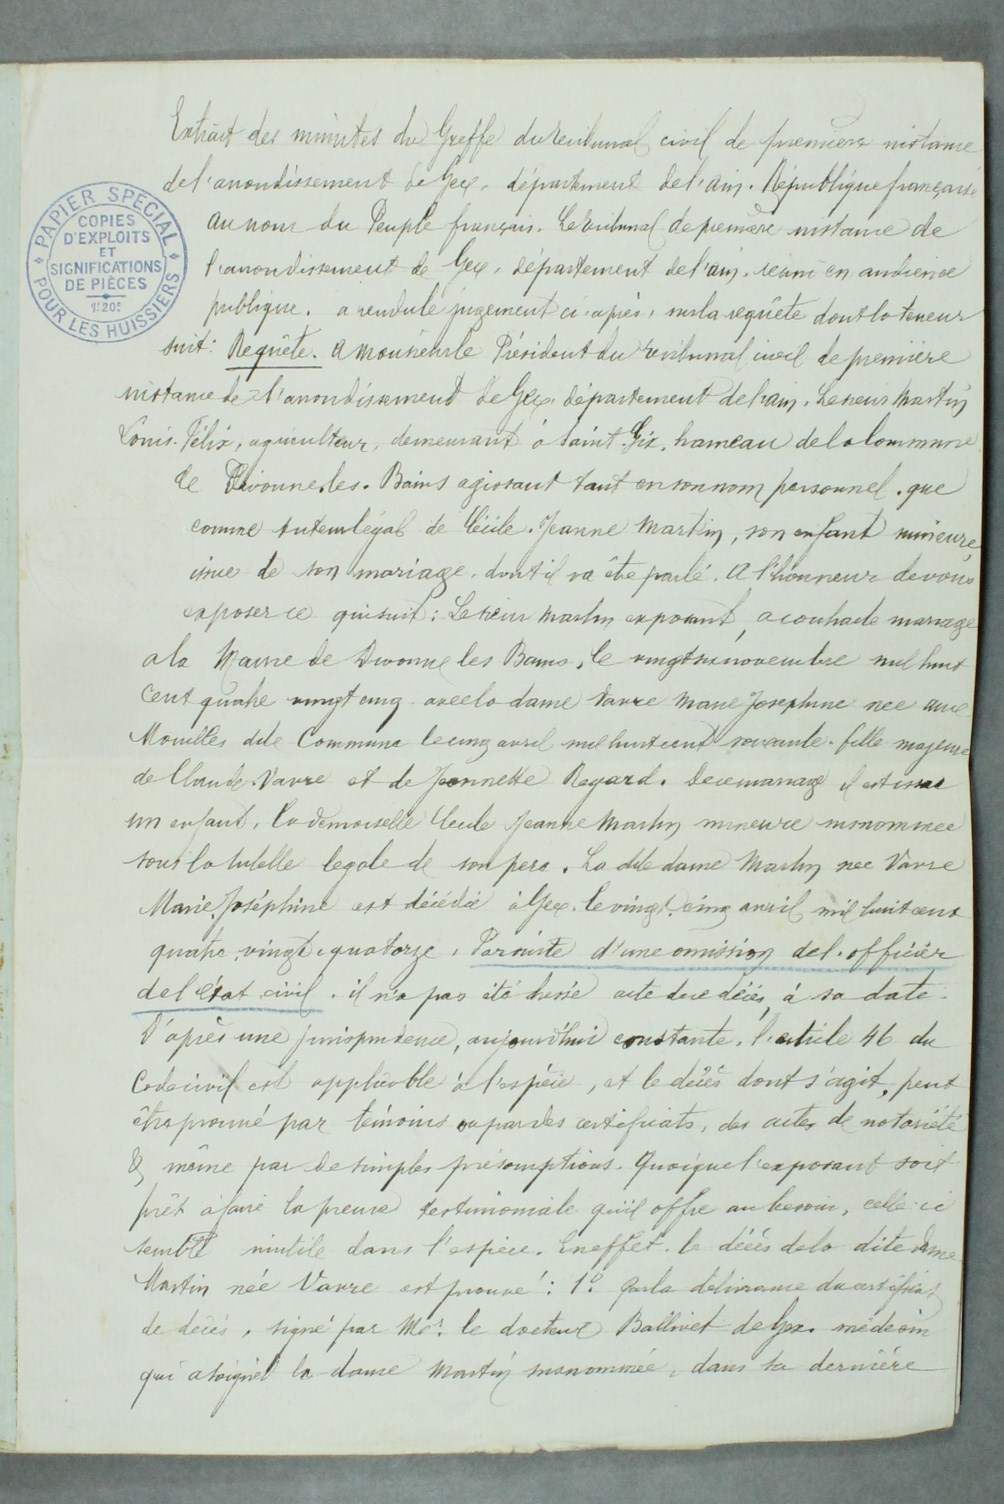 PAPIER SPÉCIAL
COPIES
D'EXPLOITS
ET
SIGNIFICATIONS
DE PIÈCES
POUR LES HUISSIERS
Extrait des minutes du Greffe du tribunal civil de première instance
de l'arrondissement de Gex, département de l'ain. République française
au nom du Peuple français. Le tribunal de première instance de
l'arrondissement de Gex, département de l'ain, réuni en audience
publique, a rendu le jugement ci après, sur la requête dont la teneur
suit: Requête. A monsieur le Président du tribunal civil de première
instance de l'arrondissement de Gex, département de l'ain. Le sieur Martin
Louis Félix, agriculteur, demeurant à Saint Gix, hameau de la Commune
de Divonne.les.Bains agissant tant en son nom personnel, que
comme tuteur légal de Cécile Jeanne Martin, son enfant mineure,
issue de son mariage, dont il va être parlé. A l'honneur de vous
exposer ce qui suit: Le sieur Martin exposant, a contracté mariage
a la Mairie de Divonne les Bains, le vingt six novembre mil huit
cent quatre vingt cinq avec la dame Varre Marie Josephine née aux
Mouilles dite Commune le cinq avril mil huit cent soixante, fille majeure
de Claude Varre et de Jeannette Regard. De ce mariage il est issu
un enfant, la demoiselle Cécile Jeanne Martin mineure susnommée
sous la tutelle legale de son père. La dite dame Martin née Varre
Marie Joséphine est décédée à Gex, le vingt cinq avril mil huit cent
quatre vingt quatorze. Par suite d'une omission de l'officier
de l'état civil, il n'a pas été dressé acte de ce décès, à sa date.
D'après une jurisprudence, aujourd'hui constante, l'article 46 du
Code civil est applicable à l'espèce, et le décès dont s'agit, peut
être prouvé par témoins ou par des certificats, des actes de notoriété
& même par de simples présomptions. Quoique l'exposant soit
prêt à faire la preuve testimoniale qu'il offre au besoin, celle-ci
semble inutile dans l'espèce. En effet, le décès de la dite dame
Martin née Varre est prouvé: 1º Par la délivrance du certificat
de décès, signé par Mr. le docteur Ballivet de Gex, médecin
qui a soigné la dame Martin susnommée, dans sa dernière